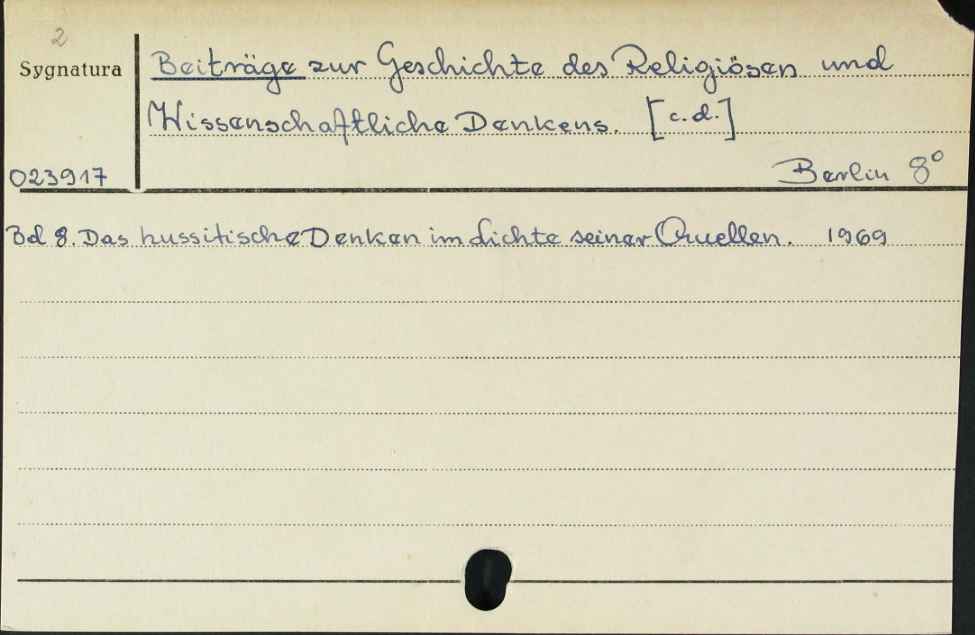 2
Sygnatura
Beiträge zur Geschichte des Religiösen und
Wissenschaftliche Denkens. [c.d.]
023917
Berlin 8°
Bd 8. Das hussitische Denken im Lichte seiner Quellen. 1969